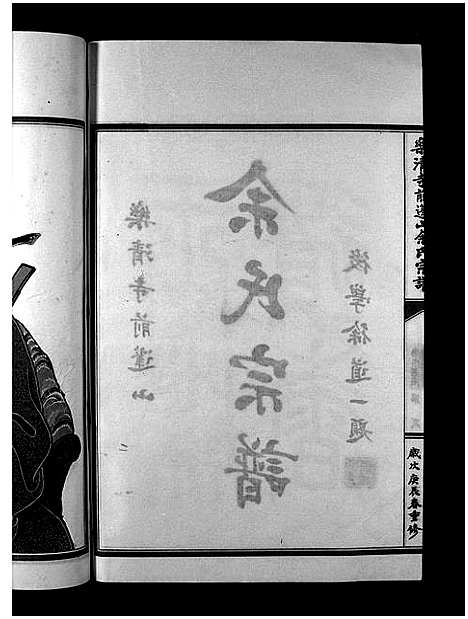 樂清寺前蓬山余氏宗譜
歲次庚辰春重修
後學徐道一題
余氏宗譜
樂清寺前蓬山